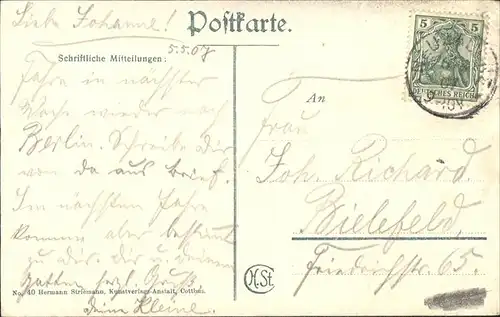 Liebe Johanne!
Postkarte.
5.5.07
Schriftliche Mitteilungen:
Fahre in nächster
Woche wieder nach
Berlin. Schreibe Dir
von da aus Brief.
Im nächsten Jahre
komme aber bestimmt
zu Dir. Dir u. Deinem
Gatten herzl. Gruß
Deine Kleine.
No. 40 Hermann Striemann, Kunstverlags-Anstalt, Cottbus.
H.St.
5 5
DEUTSCHES REICH
An
Frau
Joh. Richard.
Bielefeld,
Friedrichstr. 65.